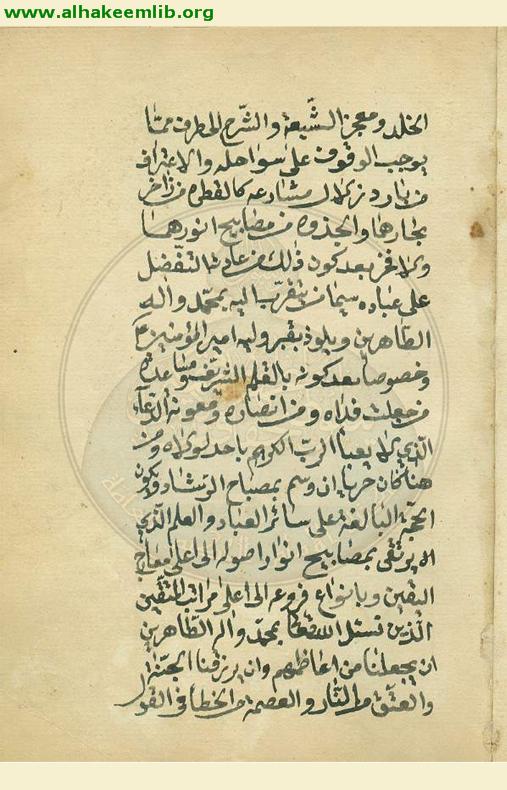 www.alhakeemlib.org
الخلد ومعجزا الشّيعة والشّرح المطرف ممّا
يوجب الوقوف على سواحله والاعتراف
من بارد زلال مشارعه كالقطرة من
بحارهما والجذوة من مصابيح انورهما
ولا فخر بعد كون ذلك من عادته التفضل
على عباده سيما من يتقرب اليه بمحمّد واله
الطاهرين ويلوذ بقبر وليه امير المؤمنين ع
وخصوصا بعد كونه بالقلم الشريف ومساعدة
من جعلت فداه ومن انصاره ومعونة الدعاء
الّذي لا يعبأ الربّ الكريم باحد لولاه ومن
هنا كان حريا ان وسم بمصباح الرشاد ويكون
الحجة البالغة على سائر العباد والعلم الذي
يرتقى بمصابيح انوار اصوله الى اعلى معارج
اليقين وبانواع فروعه الى اعلى مراتب المتّقين
الّذين نسئل اللّه بمحمّد واله الطّاهرين
ان يجعلنا من اعاظمهم وان يرزقنا الجنّة
والعتق من النّار والعصمة من الخطأ في القول